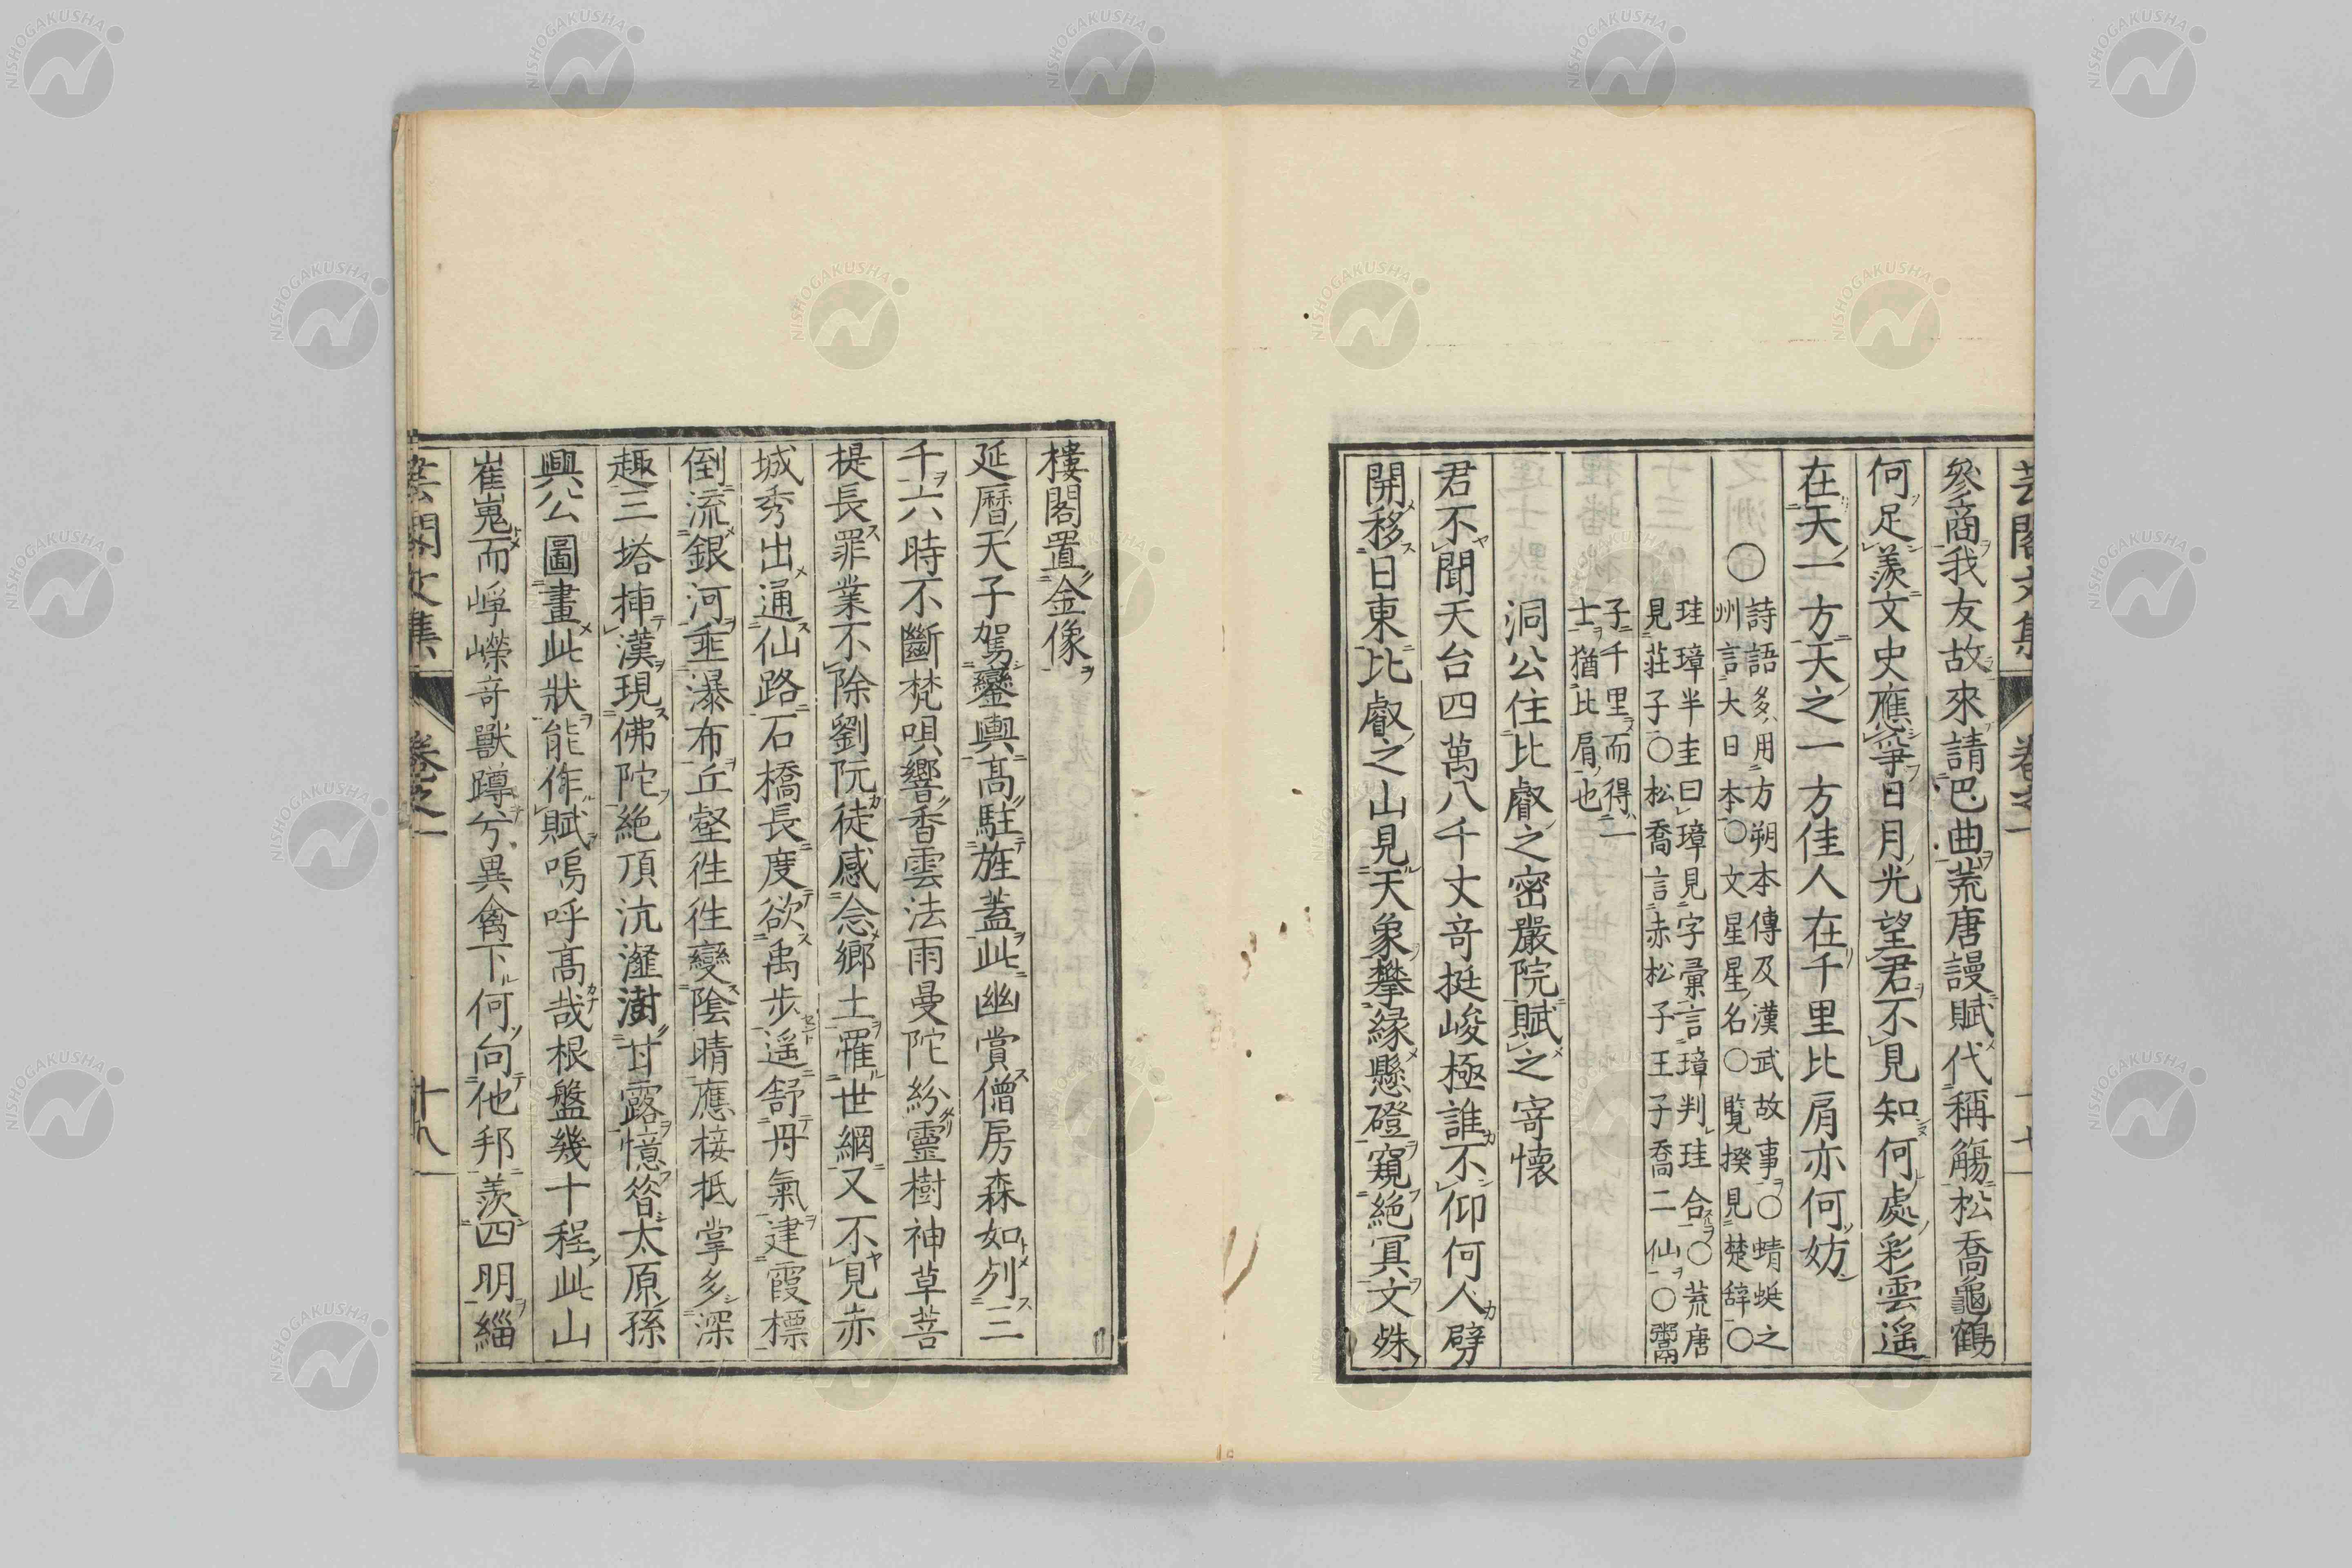 芸閣文集 卷之一 十七
參商我友故來請巴曲荒唐謾賦代稱觴松喬龜鶴
何足羨文史應爭日月光望君不見知何處彩雲遥
在天一方天之一方佳人在千里比肩亦何妨
○詩語多用方朔本傳及漢武故事○蜻蜓之
州言大日本○文星星名○覧揆見楚辞○
珪璋半圭曰璋見字彙言璋判珪合○荒唐
見莊子○松喬言赤松子王子喬二仙○鬻
子千里而得一
士猶比肩也
洞公住比叡之密嚴院賦之寄懐
君不聞天台四萬八千丈竒挺峻極誰不仰何人劈
開移日東比叡之山見天象攀縁懸磴窺絶冥文殊
樓閣置金像
延曆天子駕鑾輿髙駐旌蓋此幽賞僧房森如列三
千六時不斷梵唄響香雲法雨曼陀紛靈樹神草菩
提長罪業不除劉阮徒感念鄉土罹世綱又不見赤
城秀出通仙路石橋長度欲禹步遥舒丹氣建霞標
倒流銀河垂瀑布丘壑徃徃變陰晴應接抵掌多深
趣三塔揷漢現佛陀絶頂沆瀣澍甘露憶昝太原孫
興公圖畫此狀能作賦嗚呼髙哉根盤幾十程此山
崔嵬而崢嶸竒獸蹲兮異禽下何向他邦羨四明緇
芸閣文集 卷之一 十八